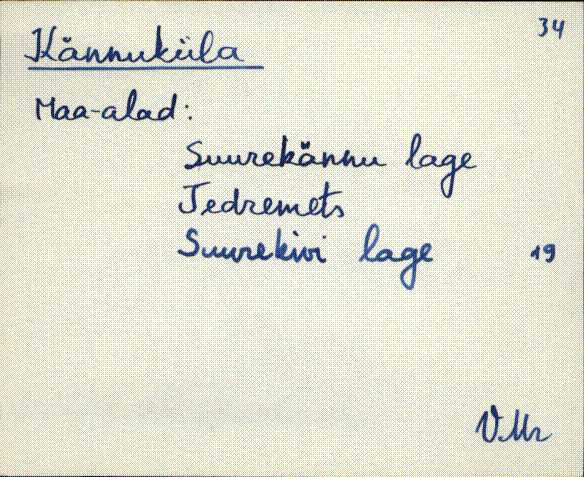 34
Kännuküla
Maa-alad:
Suurekännu lage
Tedremets
Suurekivi lage 19
VMr